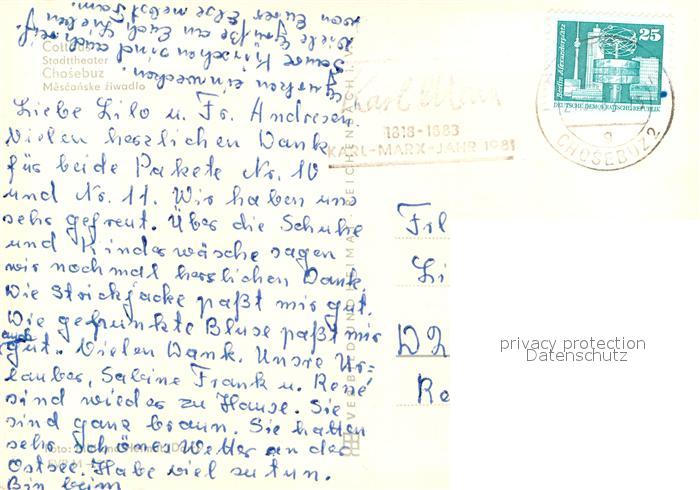 Cottbus
Stadttheater
Chośebuz
Měsćańske źiwadło
Liebe Lilo u. Fr. Andresen
Vielen herzlichen Dank
für beide Pakete Nr. 10
und Nr. 11. Wir haben uns
sehr gefreut. Über die Schuhe
und Kinderwäsche sagen
wir nochmal herzlichen Dank.
Die Strickjacke paßt mir gut.
Die gepunkte Bluse paßt mir
auch
gut. Vielen Dank. Unsre Ur=
lauber, Sabine Frank u. René
sind wieder zu Hause. Sie
sind ganz braun. Sie hatten
sehr schönes Wetter an der
Ostsee. Habe viel zu tun.
Bin beim
einwecken.
Saure Kirschen sind auch reif.
Viele Grüße an Euch Lieben
von Eurer Else nebst Fam.
Karl Marx
1818-1883
KARL-MARX-JAHR 1981
25
Berlin, Alexanderplatz
DEUTSCHE DEMOKRATISCHE REPUBLIK
CHOSEBUZ 2
Frl
Li
D2
Re
privacy protection
Datenschutz